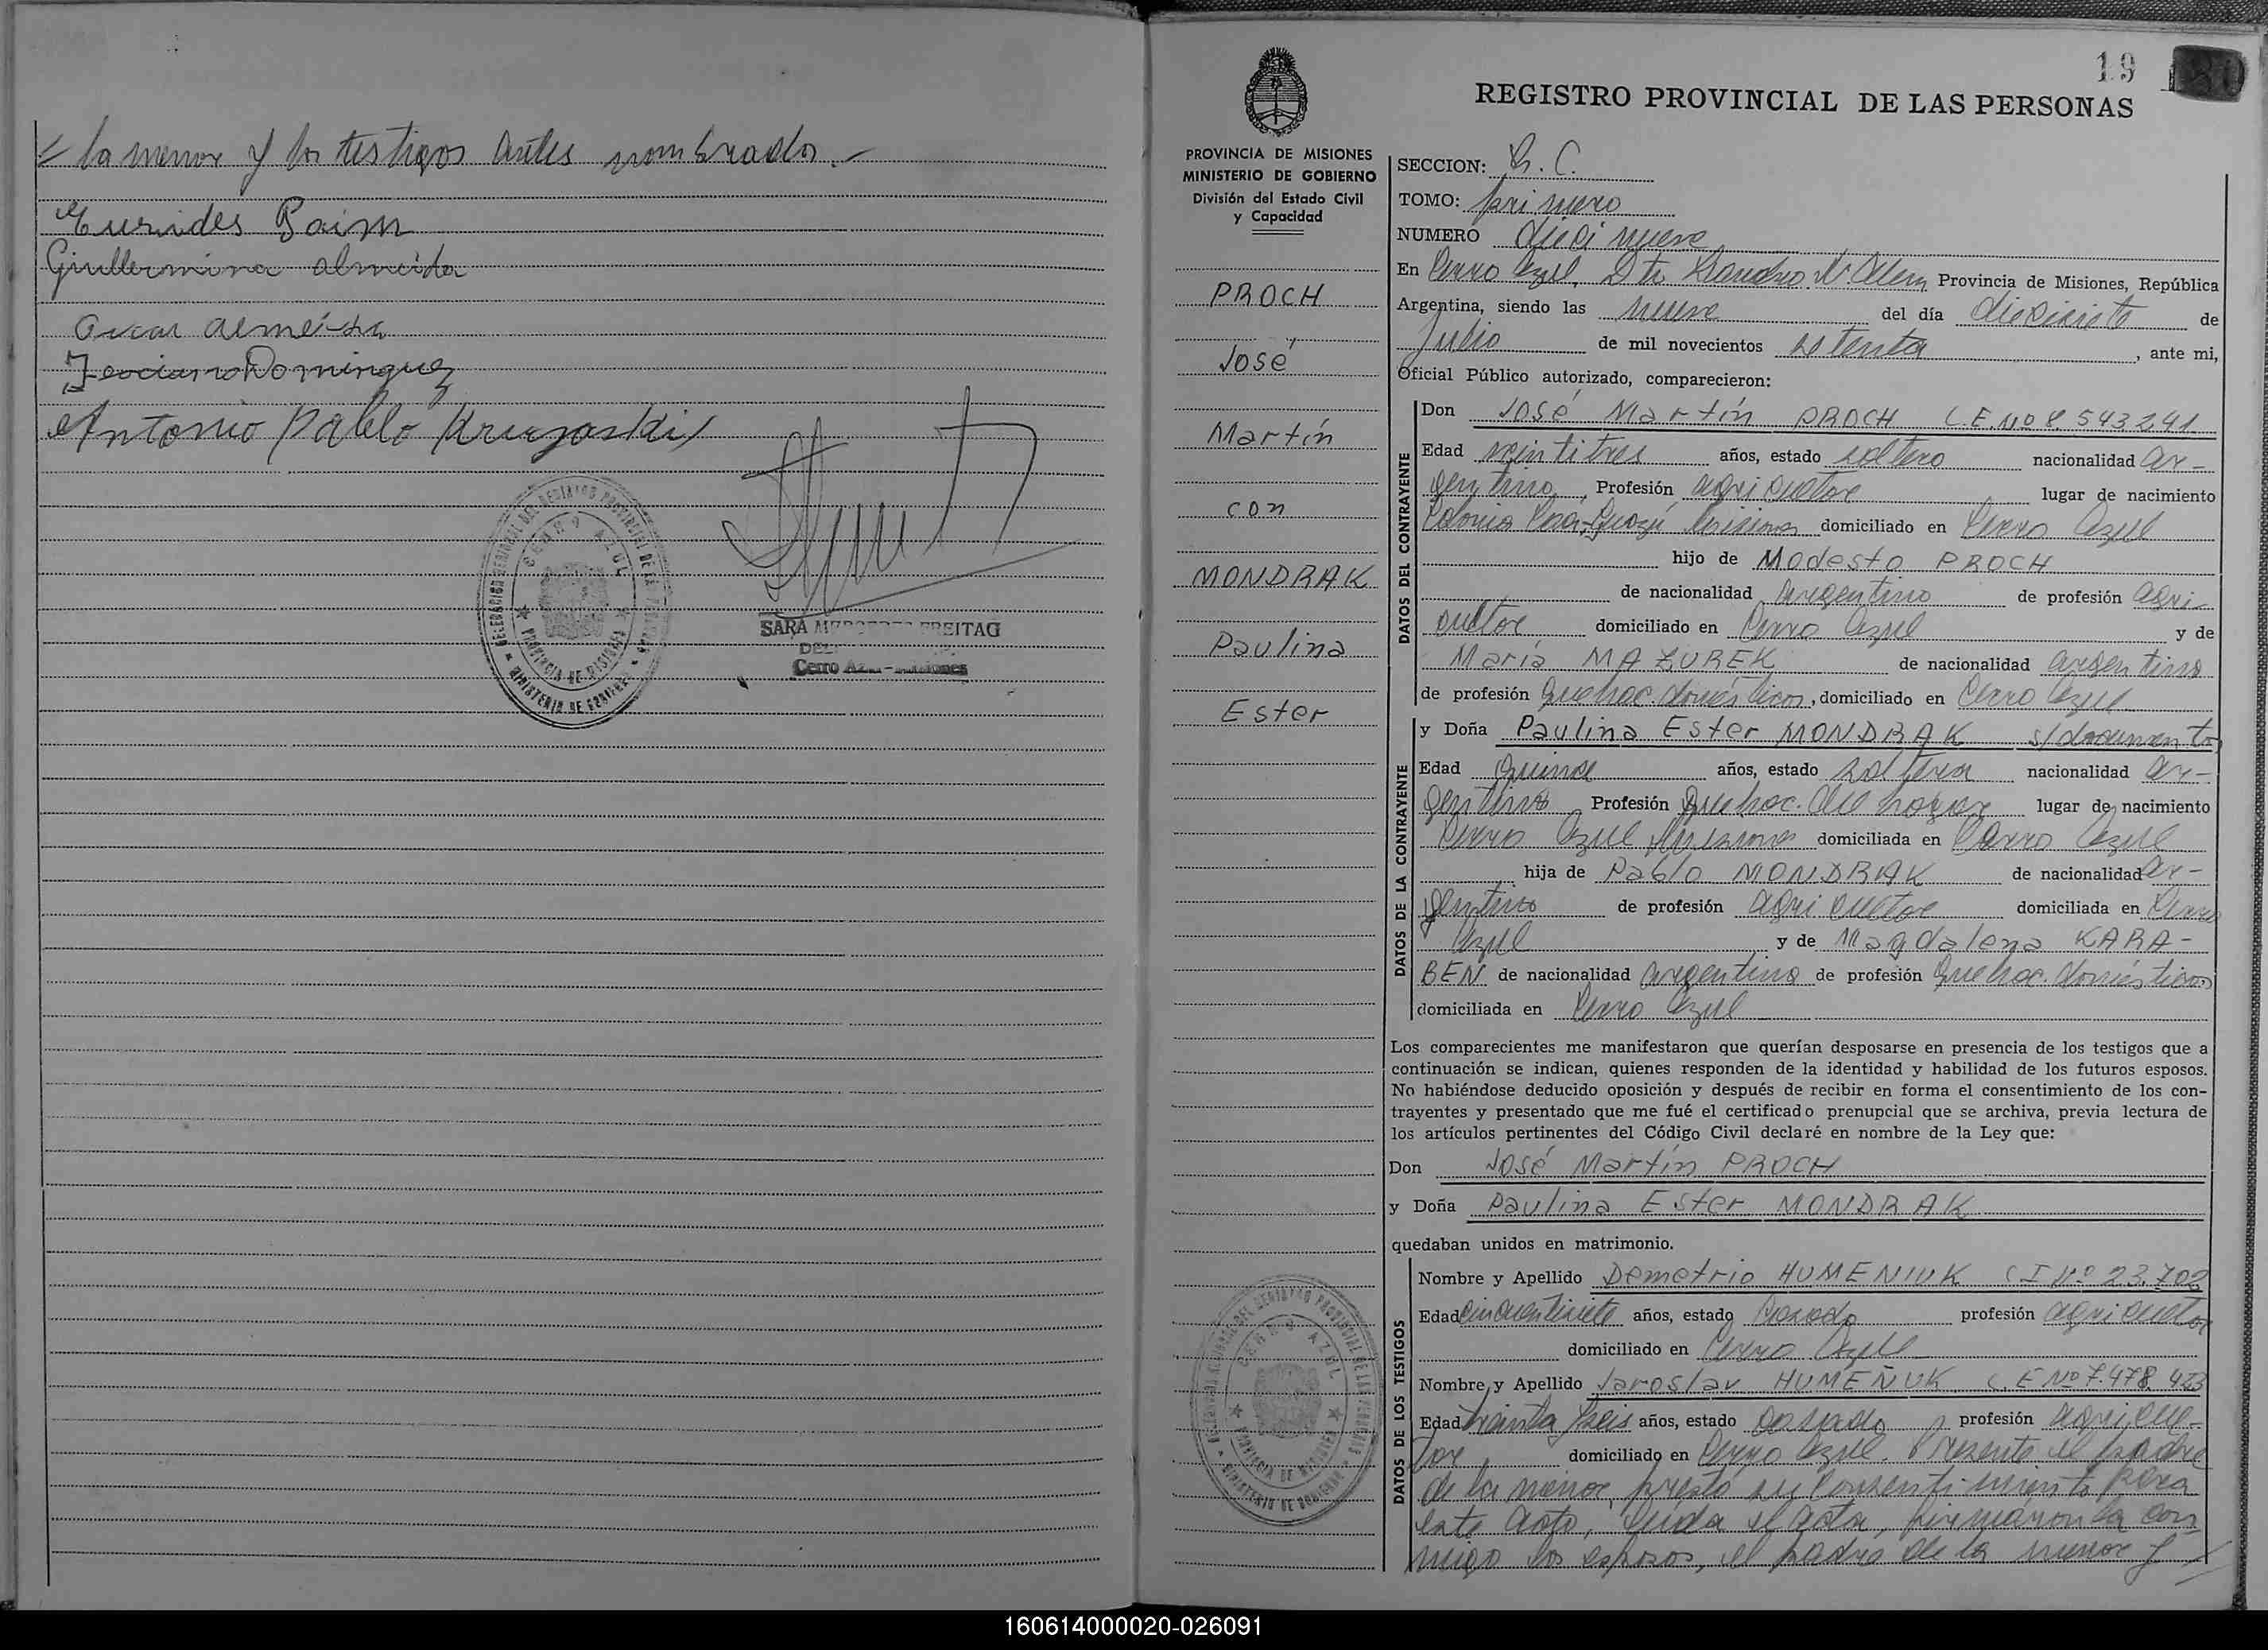 la menor y los testigos antes nombrados.-
Eurides Paim
Guillermina Almeida
Oscar Almeida
Dominguez
Antonio Pablo
DELEGACION DEL REGISTRO PROVINCIAL DE LAS PERSONAS
CERRO AZUL
PROVINCIA DE MISIONES
MINISTERIO DE GOBIERNO
SARA FREITAG
DEL
Cerro Azul - Misiones
19
REGISTRO PROVINCIAL DE LAS PERSONAS
PROVINCIA DE MISIONES
MINISTERIO DE GOBIERNO
División del Estado Civil
y Capacidad
PROCH
José
Martín
con
MONDRAK
Paulina
Ester
SECCION: C.
TOMO: primero
NUMERO diecinueve
En Cerro Azul, Dto Leandro N. Alem Provincia de Misiones, República
Argentina, siendo las nueve del día diecisiete de
Julio de mil novecientos setenta, ante mi,
Oficial Público autorizado, comparecieron:
DATOS DEL CONTRAYENTE
Don José Martín PROCH L.E. Nº 8.543.241
Edad veintitres años, estado soltero nacionalidad ar-
gentino, Profesión agricultor lugar de nacimiento
Colonia Guazú Misiones domiciliado en Cerro Azul
hijo de Modesto PROCH
de nacionalidad argentino de profesión agri-
cultor domiciliado en Cerro Azul y de
María MAZUREK de nacionalidad argentina
de profesión quehac. domésticos, domiciliado en Cerro Azul
DATOS DE LA CONTRAYENTE
y Doña Paulina Ester MONDRAK s/documento
Edad quince años, estado soltera nacionalidad ar-
gentina Profesión quehac. del hogar lugar de nacimiento
Cerro Azul Misiones domiciliada en Cerro Azul
hija de Pablo MONDRAK de nacionalidad ar-
gentino de profesión agricultor domiciliada en Cerro
Azul y de Magdalena KARA-
BEN de nacionalidad argentina de profesión quehac. domésticos
domiciliada en Cerro Azul
Los comparecientes me manifestaron que querían desposarse en presencia de los testigos que a
continuación se indican, quienes responden de la identidad y habilidad de los futuros esposos.
No habiéndose deducido oposición y después de recibir en forma el consentimiento de los con-
trayentes y presentado que me fué el certificado prenupcial que se archiva, previa lectura de
los artículos pertinentes del Código Civil declaré en nombre de la Ley que:
Don José Martín PROCH
y Doña Paulina Ester MONDRAK
quedaban unidos en matrimonio.
DATOS DE LOS TESTIGOS
Nombre y Apellido Demetrio HUMENIUK C I Nº 23.702
Edad cincuentisiete años, estado casado profesión agricultor
domiciliado en Cerro Azul
Nombre y Apellido Jaroslav HUMEÑUK L. E Nº 7.478.423
Edad treinta seis años, estado casado, profesión agricul-
tor domiciliado en Cerro Azul. Presente el padre
de la menor, prestó su consentimiento para
este acto, leida el acta, firmáronla con
migo los esposos, el padre de la menor y
DELEGACION DEL REGISTRO PROVINCIAL DE LAS PERSONAS
CERRO AZUL
PROVINCIA DE MISIONES
MINISTERIO DE GOBIERNO
160614000020-026091